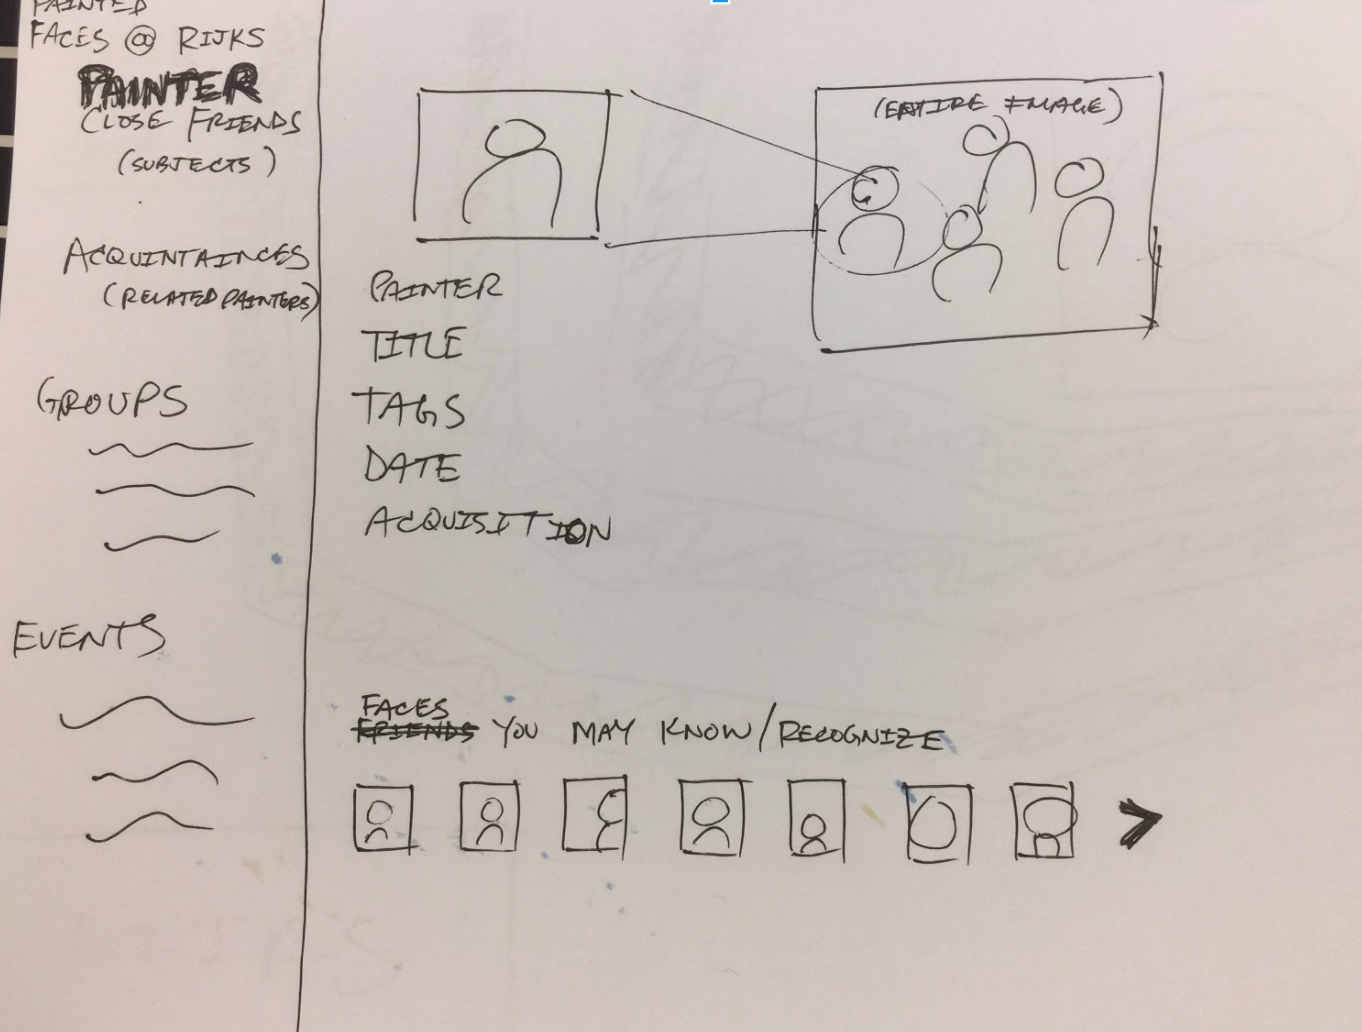 PAINTED
FACES @ RIJKS
PAINTER
CLOSE FRIENDS
(SUBJECTS)
ACQUINTAINCES
(RELATED PAINTERS)
GROUPS
EVENTS
(ENTIRE IMAGE)
PAINTER
TITLE
TAGS
DATE
ACQUISITION
FACES
FRIENDS YOU MAY KNOW/RECOGNIZE